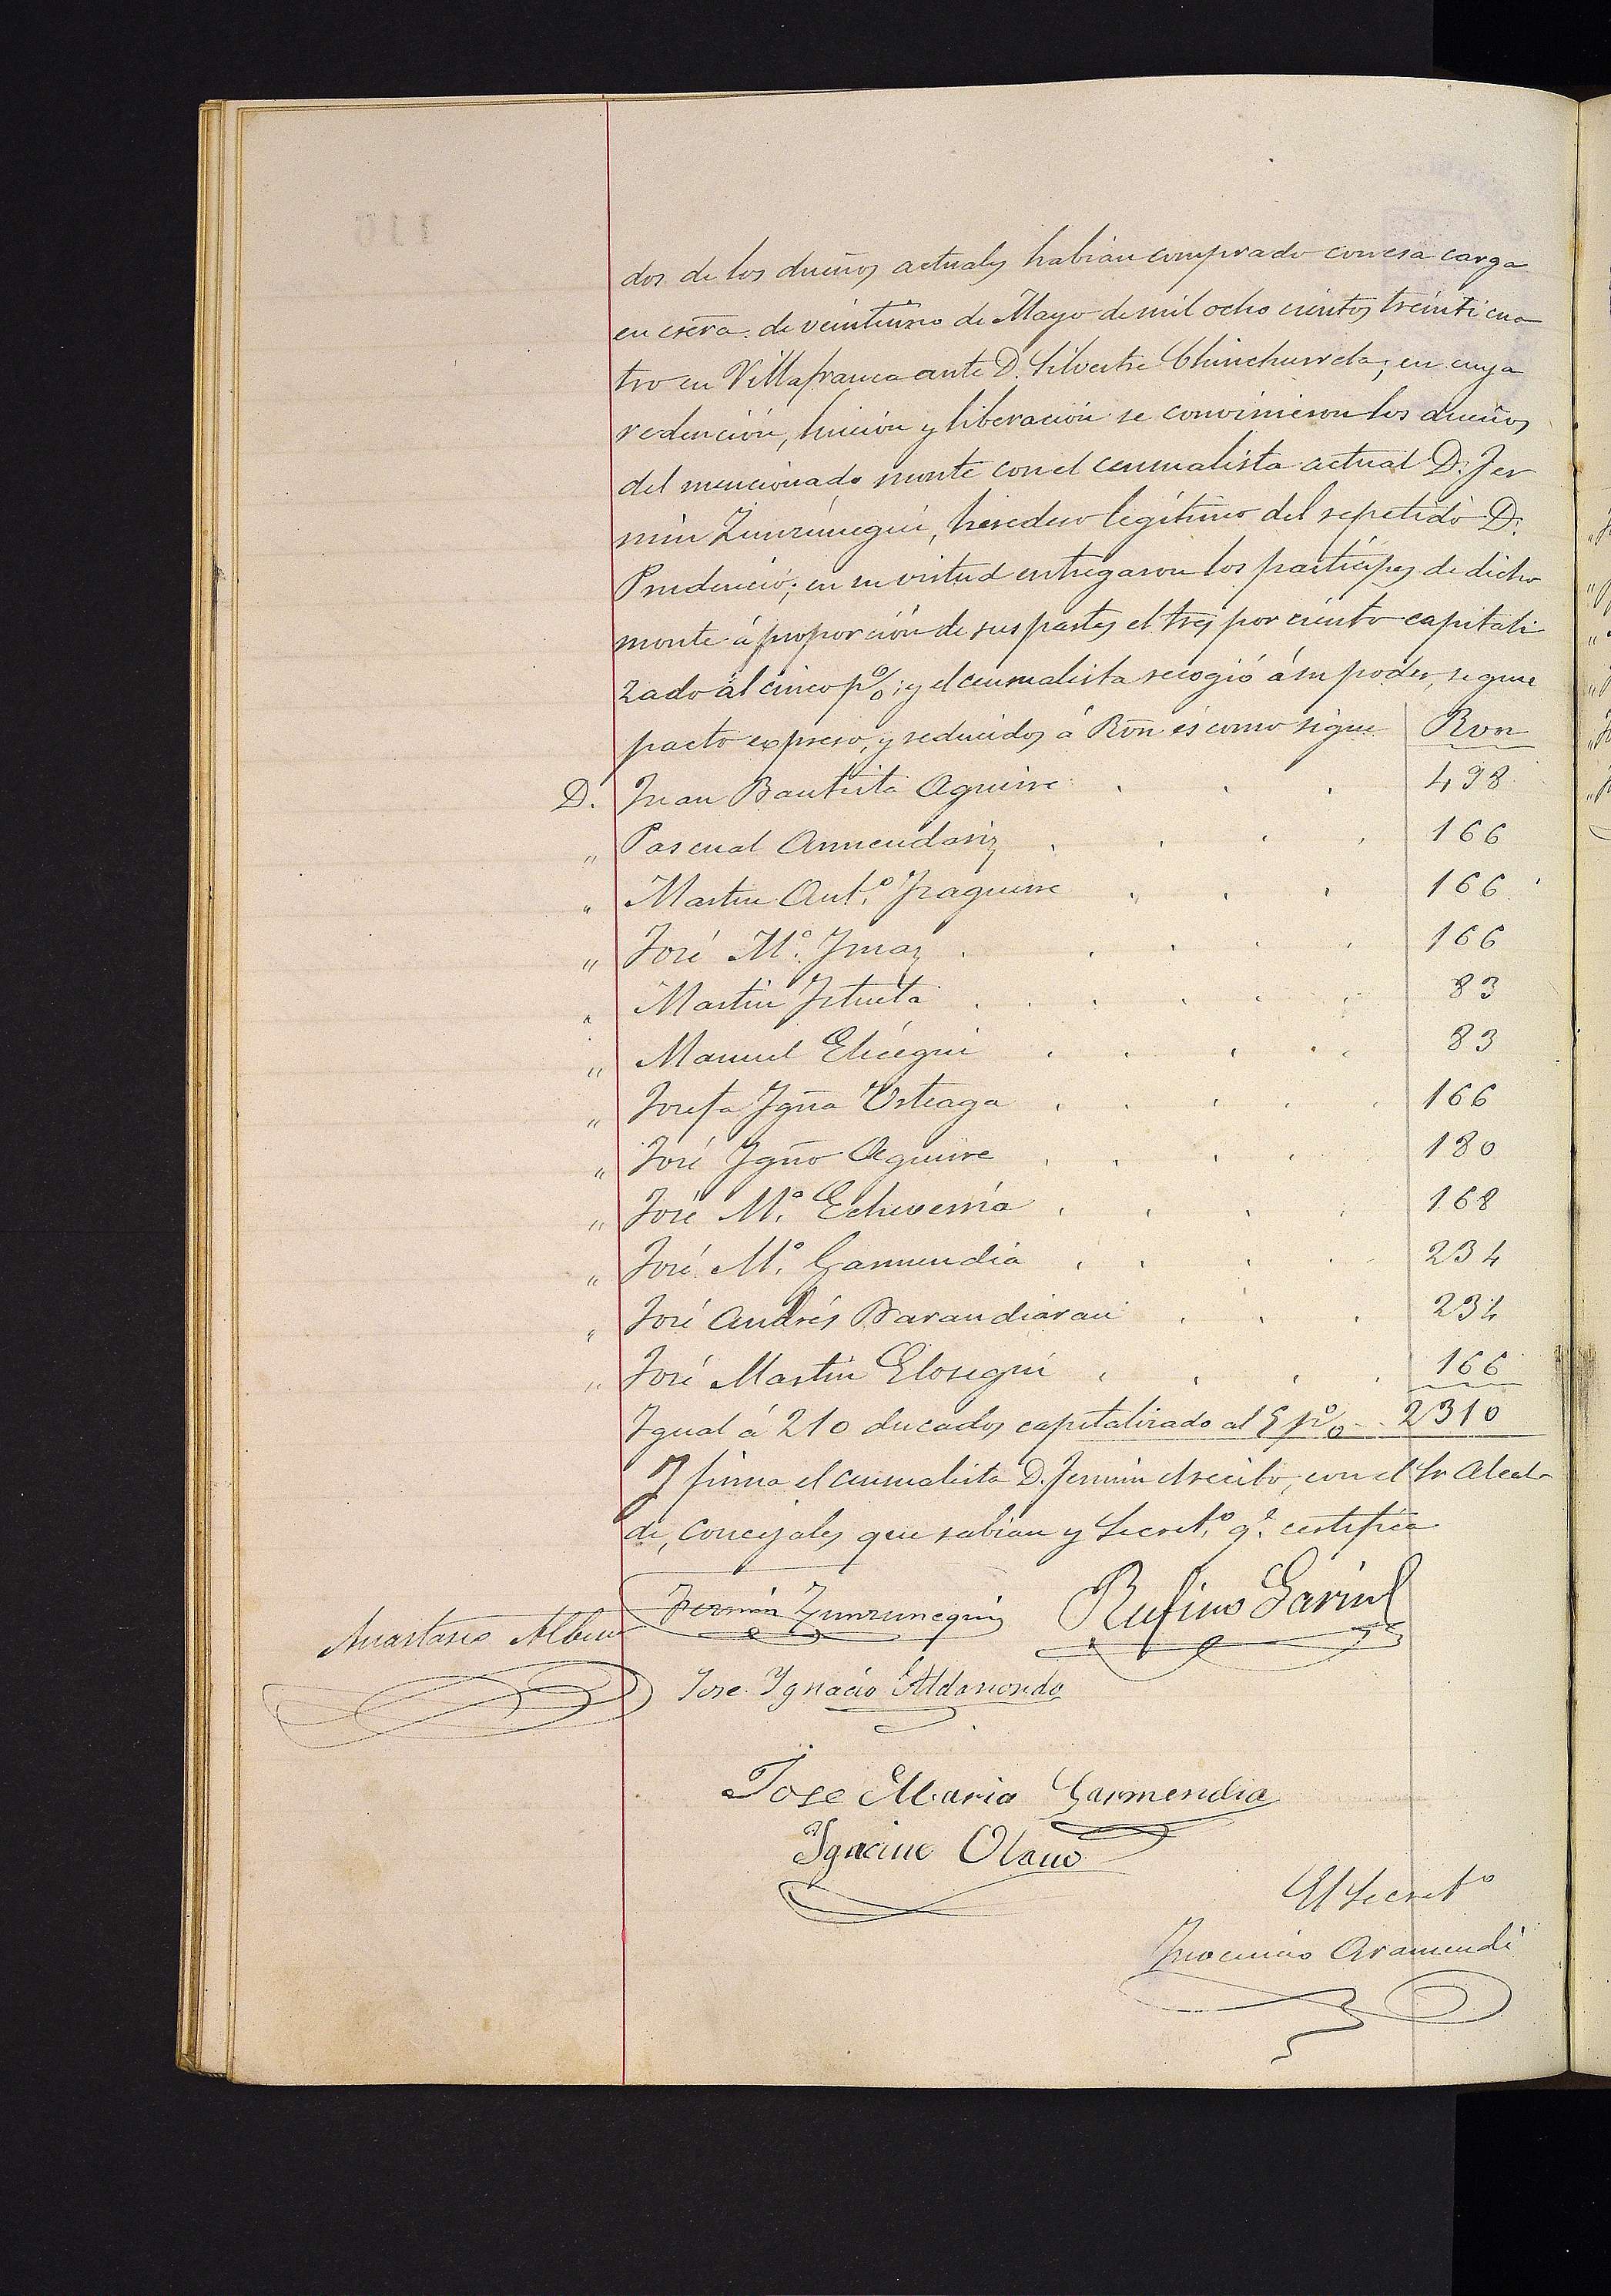 dos de los dueños actuales habian comprado con esa carga
en escra. de veintiuno de Mayo de mil ocho cientos treinti cua
tro en Villafranca ante D. Silvestre Chinchurreta; en cuya
redención, luición y liberación se convinieron los dueños
del mencionado monte con el censualista actual D. Fer
min Zunzunegui, heredero legítimo del repetido D.
Prudencio; en su virtud entregaron los partícipes de dicho
monte á proporción de sus partes el tres por ciento capitali
zado al cinco p%; y el censualista recogió á su poder, segun
pacto expreso, y reducidos á Rvn es como sigue Rvn
D. Juan Bautista Aguirre . . . 498
" Pascual Armendariz . . . . 166
" Martin Ant.º Iraguirre . . . 166
" José M.ª Imaz . . . . . 166
" Martin Iztueta . . . . . 83
" Manuel Elicegui . . . . . 83
" Josefa Igña Urteaga . . . . . 166
" José Igño Aguirre . . . . 180
" José M.ª Echeverría . . . . 168
" José M.ª Garmendia . . . . 234
" José Andrés Barandiaran . . . 234
" José Martin Elosegui . . . . 166
Igual á 210 ducados capitalizado al 5 p% . . 2310
Y firma el censualista D. Fermin el recibo, con el Sr Alcal
de, Concejales que sabian y Secret.º q.e certifica
Fermin Zunzunegui Rufino Garin
Anastasio Albisu
Jose Ygnacio Aldasoro
Jose Maria Garmendia
Ygnacio Olano
El Secret.º
Inocencio Aramendi